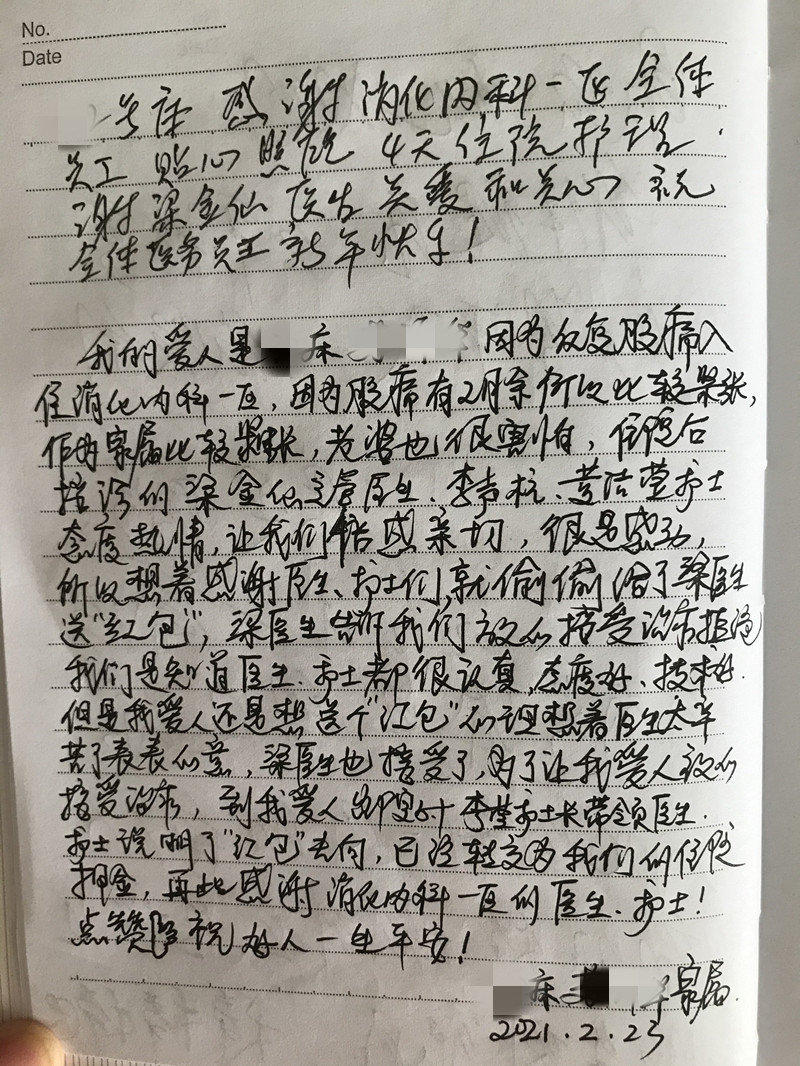 No.
Date
号床 感谢消化内科一区全体
员工贴心照顾 4天住院护理.
谢谢梁金仙医生关爱和关心 祝
全体医务员工新年快乐!
我的爱人是 床 因为反复腹痛入
住消化内科一区, 因为腹痛有2月余所以比较紧张,
作为家属比较紧张, 老婆也很害怕, 住院后
接诊的梁金仙主管医生、李 、黄洁莹护士
态度热情, 让我们倍感亲切, 很是感动,
所以想着感谢医生、护士们, 就偷偷给了梁医生
送“红包”, 梁医生告诉我们放心接受治疗拒绝
我们是知道医生、护士都很认真, 态度好、技术好.
但是我爱人还是想送个“红包”心理想着医生太辛
苦了表表心意, 梁医生也接受了, 为了让我爱人放心
接受治疗, 到我爱人 李莹护士长带领医生.
护士说明了“红包”去向, 已经转交为我们的住院
押金, 再此感谢消化内科一区的医生、护士!
点赞 祝好人一生平安!
床 家属.
2021.2.23